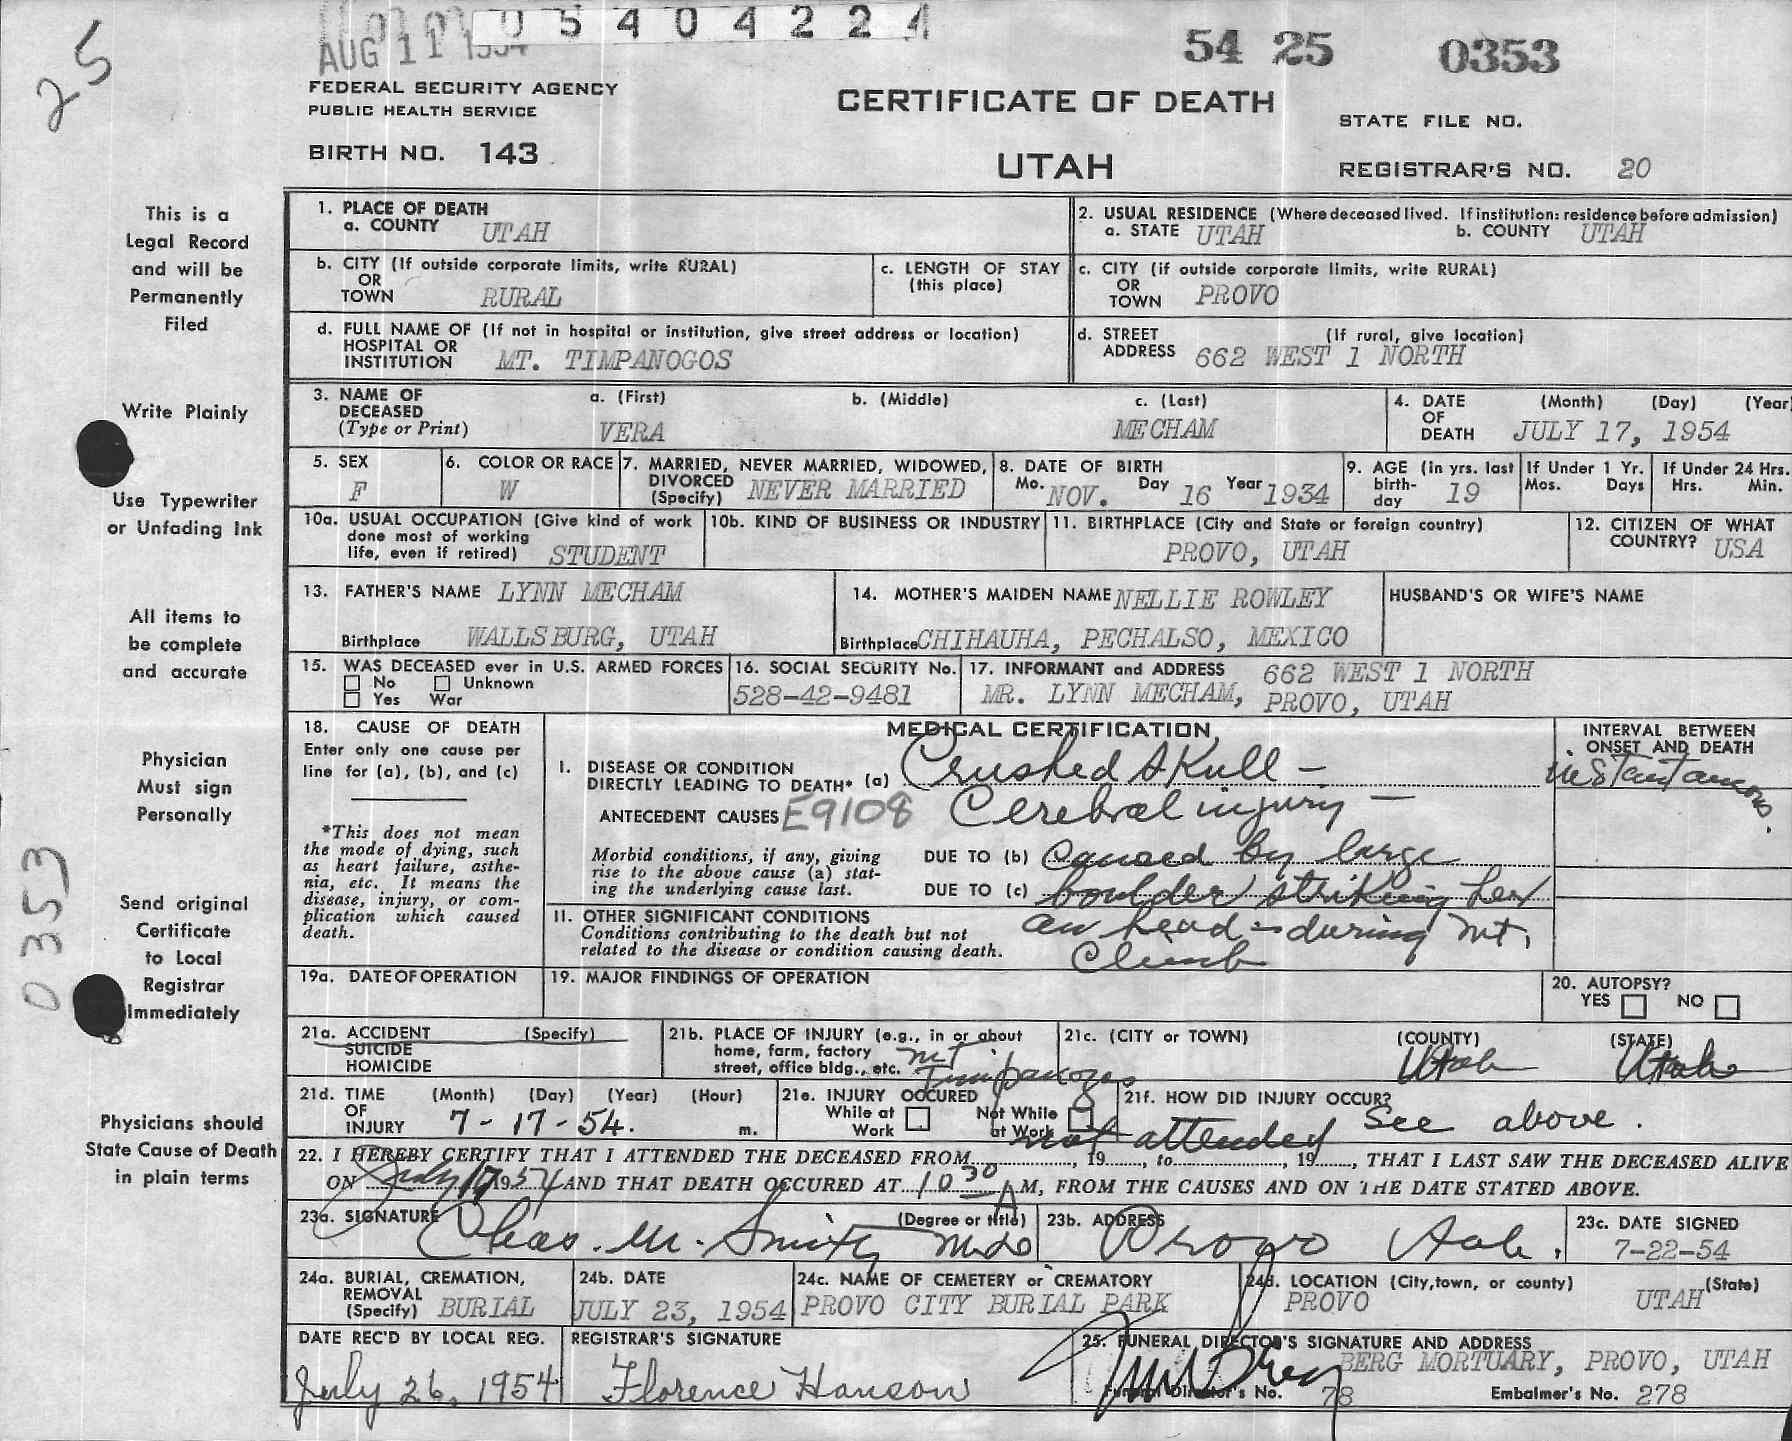 25
0 5 4 0 4 2 2 4
AUG 11 1954
54 25 0353
FEDERAL SECURITY AGENCY
PUBLIC HEALTH SERVICE
CERTIFICATE OF DEATH
STATE FILE NO.
BIRTH NO. 143
UTAH
REGISTRAR'S NO. 20
This is a
Legal Record
and will be
Permanently
Filed
Write Plainly
Use Typewriter
or Unfading Ink
All items to
be complete
and accurate
Physician
Must sign
Personally
Send original
Certificate
to Local
Registrar
Immediately
Physicians should
State Cause of Death
in plain terms
0353
1. PLACE OF DEATH
a. COUNTY UTAH
2. USUAL RESIDENCE (Where deceased lived. If institution: residence before admission)
a. STATE UTAH b. COUNTY UTAH
b. CITY (If outside corporate limits, write RURAL)
OR
TOWN RURAL
c. LENGTH OF STAY
(this place)
c. CITY (if outside corporate limits, write RURAL)
OR
TOWN PROVO
d. FULL NAME OF (If not in hospital or institution, give street address or location)
HOSPITAL OR
INSTITUTION MT. TIMPANOGOS
d. STREET (If rural, give location)
ADDRESS 662 WEST 1 NORTH
3. NAME OF
DECEASED
(Type or Print)
a. (First) b. (Middle) c. (Last)
VERA MECHAM
4. DATE (Month) (Day) (Year)
OF
DEATH JULY 17, 1954
5. SEX
F
6. COLOR OR RACE
W
7. MARRIED, NEVER MARRIED, WIDOWED,
DIVORCED
(Specify) NEVER MARRIED
8. DATE OF BIRTH
Mo. NOV. Day 16 Year 1934
9. AGE (in yrs. last
birth-
day 19
If Under 1 Yr.
Mos. Days
If Under 24 Hrs.
Hrs. Min.
10a. USUAL OCCUPATION (Give kind of work
done most of working
life, even if retired) STUDENT
10b. KIND OF BUSINESS OR INDUSTRY
11. BIRTHPLACE (City and State or foreign country)
PROVO, UTAH
12. CITIZEN OF WHAT
COUNTRY? USA
13. FATHER'S NAME LYNN MECHAM
Birthplace WALLSBURG, UTAH
14. MOTHER'S MAIDEN NAME NELLIE ROWLEY
Birthplace CHIHAUHA, PECHALSO, MEXICO
HUSBAND'S OR WIFE'S NAME
15. WAS DECEASED ever in U.S. ARMED FORCES
No Unknown
Yes War
16. SOCIAL SECURITY No.
528-42-9481
17. INFORMANT and ADDRESS 662 WEST 1 NORTH
MR. LYNN MECHAM, PROVO, UTAH
18. CAUSE OF DEATH
Enter only one cause per
line for (a), (b), and (c)
*This does not mean
the mode of dying, such
as heart failure, asthe-
nia, etc. It means the
disease, injury, or com-
plication which caused
death.
MEDICAL CERTIFICATION
INTERVAL BETWEEN
ONSET AND DEATH
I. DISEASE OR CONDITION
DIRECTLY LEADING TO DEATH* (a) Crushed skull -
instantaneous.
ANTECEDENT CAUSES E9108 Cerebral injury -
Morbid conditions, if any, giving
rise to the above cause (a) stat-
ing the underlying cause last.
DUE TO (b) caused by large
DUE TO (c) boulder striking her
II. OTHER SIGNIFICANT CONDITIONS
Conditions contributing to the death but not
related to the disease or condition causing death.
on head - during Mt.
Climb
19a. DATE OF OPERATION
19. MAJOR FINDINGS OF OPERATION
20. AUTOPSY?
YES NO
21a. ACCIDENT (Specify)
SUICIDE
HOMICIDE
21b. PLACE OF INJURY (e.g., in or about
home, farm, factory
street, office bldg., etc. Mt
Timpanogos
21c. (CITY or TOWN) (COUNTY) (STATE)
Utah Utah
21d. TIME (Month) (Day) (Year) (Hour)
OF
INJURY 7-17-54. m.
21e. INJURY OCCURED
While at Work
Not While at Work
21f. HOW DID INJURY OCCUR?
See above.
not attended
22. I HEREBY CERTIFY THAT I ATTENDED THE DECEASED FROM, 19, to, 19, THAT I LAST SAW THE DECEASED ALIVE
ON July 17 1954 AND THAT DEATH OCCURED AT 10 30 AM, FROM THE CAUSES AND ON THE DATE STATED ABOVE.
23a. SIGNATURE (Degree or title)
Chas. M. Smith MD
23b. ADDRESS
Provo Utah.
23c. DATE SIGNED
7-22-54
24a. BURIAL, CREMATION,
REMOVAL
(Specify) BURIAL
24b. DATE
JULY 23, 1954
24c. NAME OF CEMETERY or CREMATORY
PROVO CITY BURIAL PARK
24d. LOCATION (City, town, or county) (State)
PROVO UTAH
DATE REC'D BY LOCAL REG.
July 26, 1954
REGISTRAR'S SIGNATURE
Florence Hanson
25. FUNERAL DIRECTOR'S SIGNATURE AND ADDRESS
BERG MORTUARY, PROVO, UTAH
Funeral Director's No. 78 Embalmer's No. 278